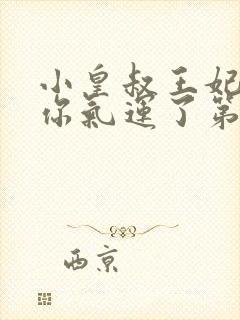 小皇叔王妃
你氣運了第
西京